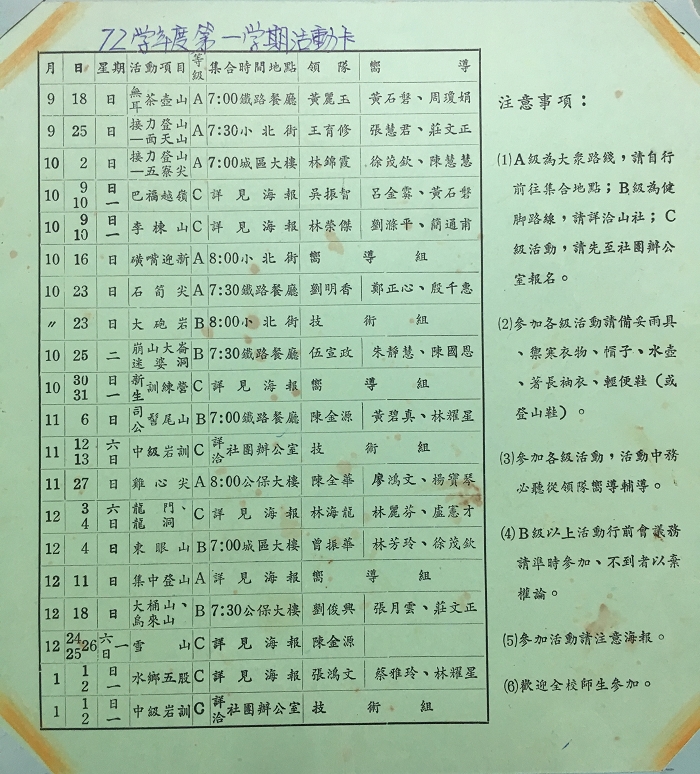 72学年度第一学期活動卡
月 日 星期 活動項目 等級 集合時間地點 領隊 嚮導
9 18 日 無耳茶壺山 A 7:00鐵路餐廳 黃麗玉 黃石磐、周瓊娟
9 25 日 接力登山—面天山 A 7:30小北街 王育修 張慧君、莊文正
10 2 日 接力登山—五寮尖 A 7:00城區大樓 林錦霞 徐茂欽、陳慧慧
10 9 10 日 一 巴福越嶺 C 詳見海報 吳振智 呂金霖、黃石磐
10 9 10 日 一 李棟山 C 詳見海報 林榮傑 劉滌平、簡通甫
10 16 日 磺嘴迎新 A 8:00小北街 嚮導組
10 23 日 石筍尖 A 7:30鐵路餐廳 劉明香 鄭正心、殷千惠
〃 23 日 大砲岩 B 8:00小北街 技術組
10 25 二 崩山大崙迷婆洞 B 7:30鐵路餐廳 伍室政 朱靜慧、陳國恩
10 30 31 日 一 新生訓練營 C 詳見海報 嚮導組
11 6 日 司公髻尾山 B 7:00鐵路餐廳 陳金源 黃碧真、林耀星
11 12 13 六 日 中級岩訓 C 詳洽社團辦公室 技術組
11 27 日 雞心尖 A 8:00公保大樓 陳全華 廖鴻文、楊寶琴
12 3 4 六 日 龍門、龍洞 C 詳見海報 林海龍 林麗芬、盧憲才
12 4 日 東眼山 B 7:00城區大樓 曾振華 林芳玲、徐茂欽
12 11 日 集中登山 A 詳見海報 嚮導組
12 18 日 大桶山、烏來山 B 7:30公保大樓 劉俊興 張月雲、莊文正
12 24 25 26 六 日 一 雪山 C 詳見海報 陳金源
1 1 2 日 一 水鄉五股 C 詳見海報 張鴻文 蔡雅玲、林耀星
1 1 2 日 一 中級岩訓 C 詳洽社團辦公室 技術組
注意事項：
(1)A級為大眾路綫，請自行
前往集合地點；B級為健
脚路線，請詳洽山社；C
級活動，請先至社團辦公
室報名。
(2)參加各級活動請備妥雨具
、禦寒衣物、帽子、水壺
、著長袖衣、輕便鞋（或
登山鞋）。
(3)參加各級活動，活動中務
必聽從領隊嚮導輔導。
(4)B級以上活動行前會議務
請準時參加、不到者以棄
權論。
(5)參加活動請注意海報。
(6)歡迎全校師生參加。